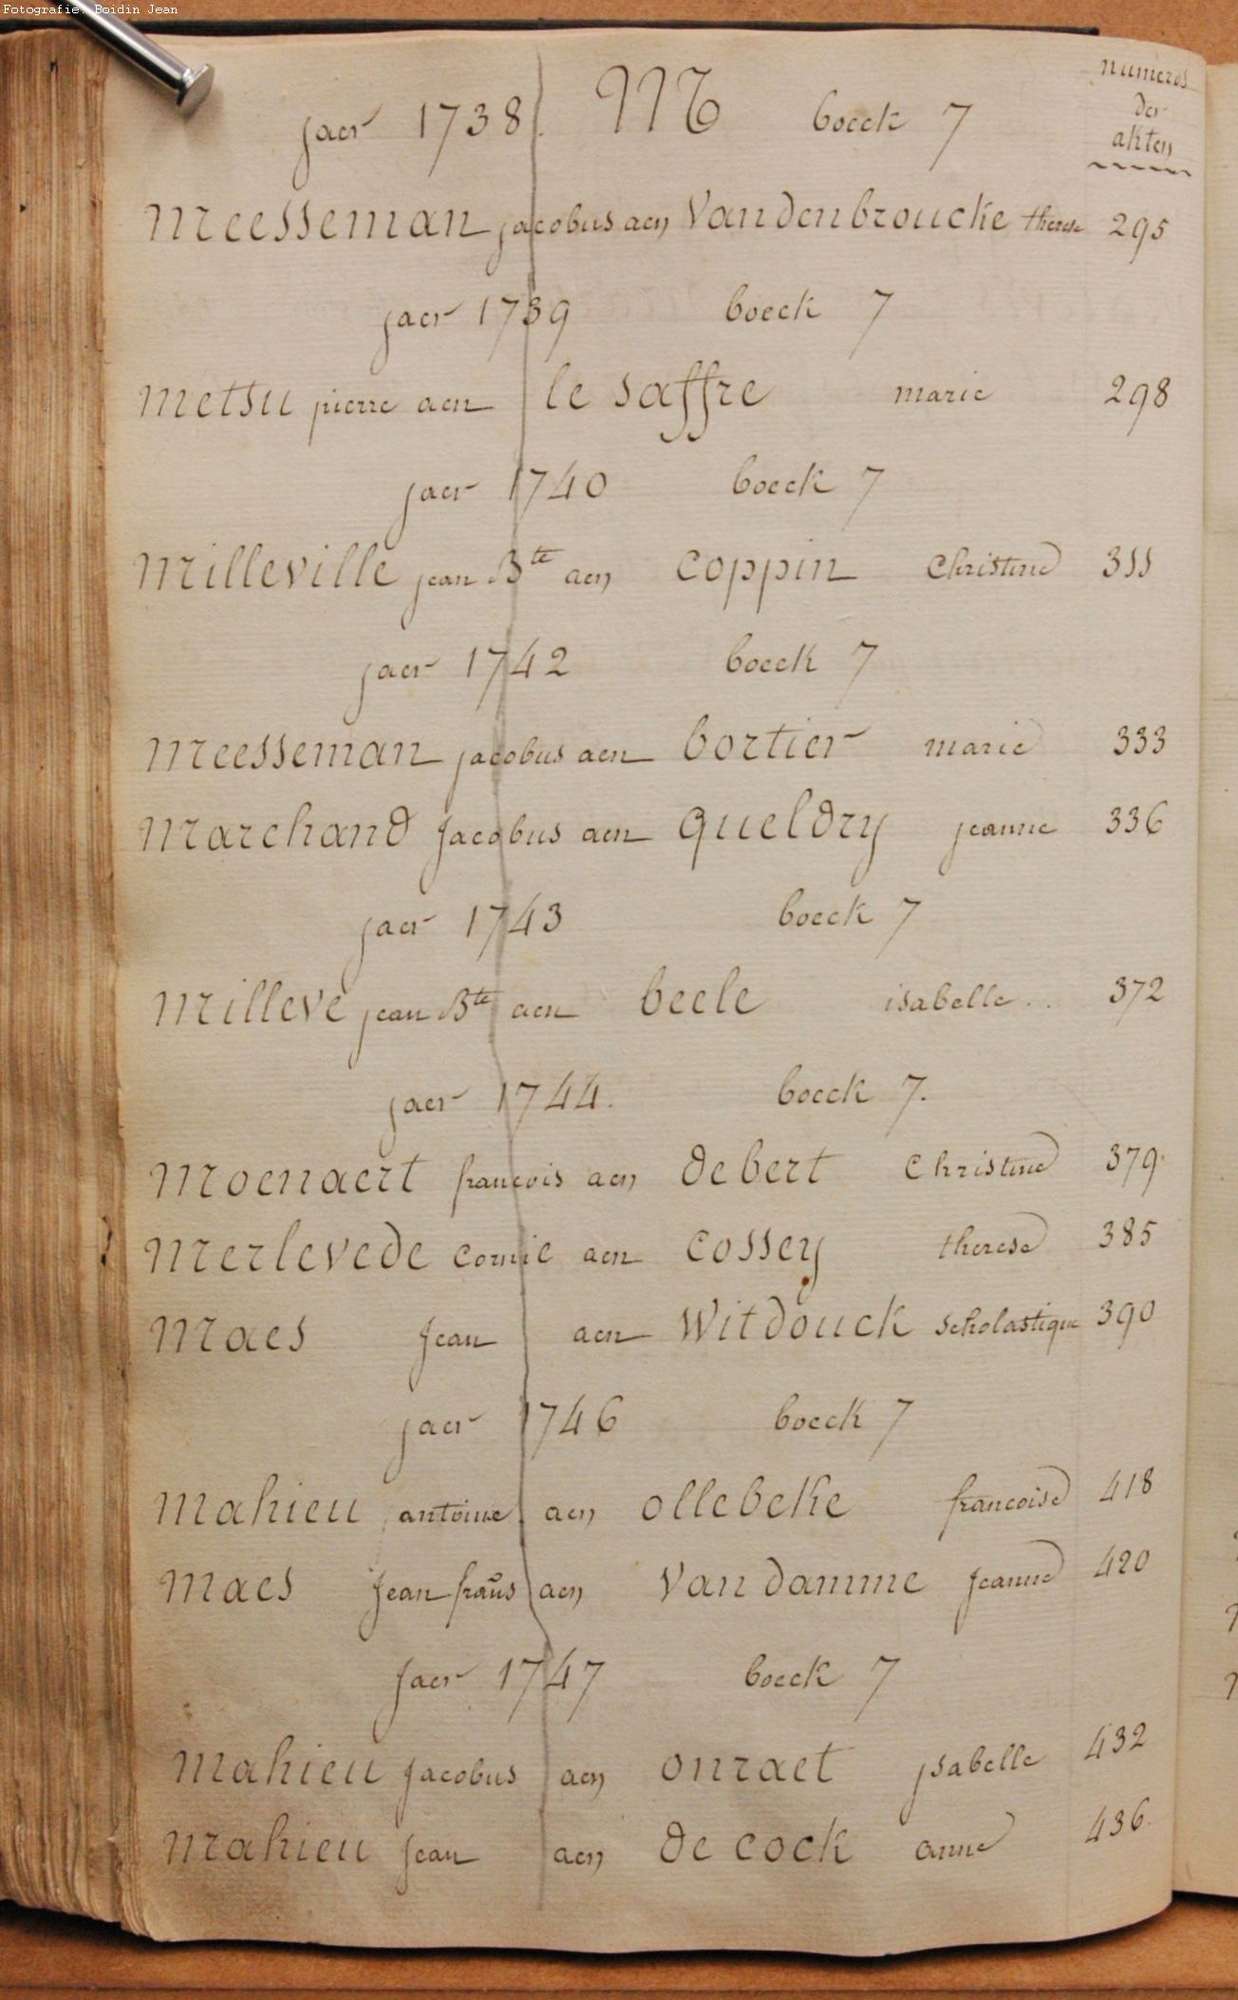 Fotografie: Boidin Jean
jaer 1738. M boeck 7
numeros
der
akten
Meesseman jacobus aen Vandenbroucke therese 295
jaer 1739 boeck 7
metsu pierre aen le saffre marie 298
jaer 1740 boeck 7
Milleville jean Bte aen coppin Christine 311
jaer 1742 boeck 7
Meesseman jacobus aen bortier marie 333
Marchand Jacobus aen queldry jeanne 336
jaer 1743 boeck 7
Milleve jean Bte aen beele isabelle .. 372
jaer 1744. boeck 7.
Moenaert francois aen debert Christine 379.
Merlevede Cornie aen cossey therese 385
Maes Jean aen Witdouck scholastique 390
jaer 1746 boeck 7
Mahieu antoine aen ollebeke francoise 418
Maes Jean frañs aen Van damme Jeanne 420
Jaer 1747 boeck 7
Mahieu Jacobus aen onraet ysabelle 432
Mahieu Jean aen de cock anne 436.